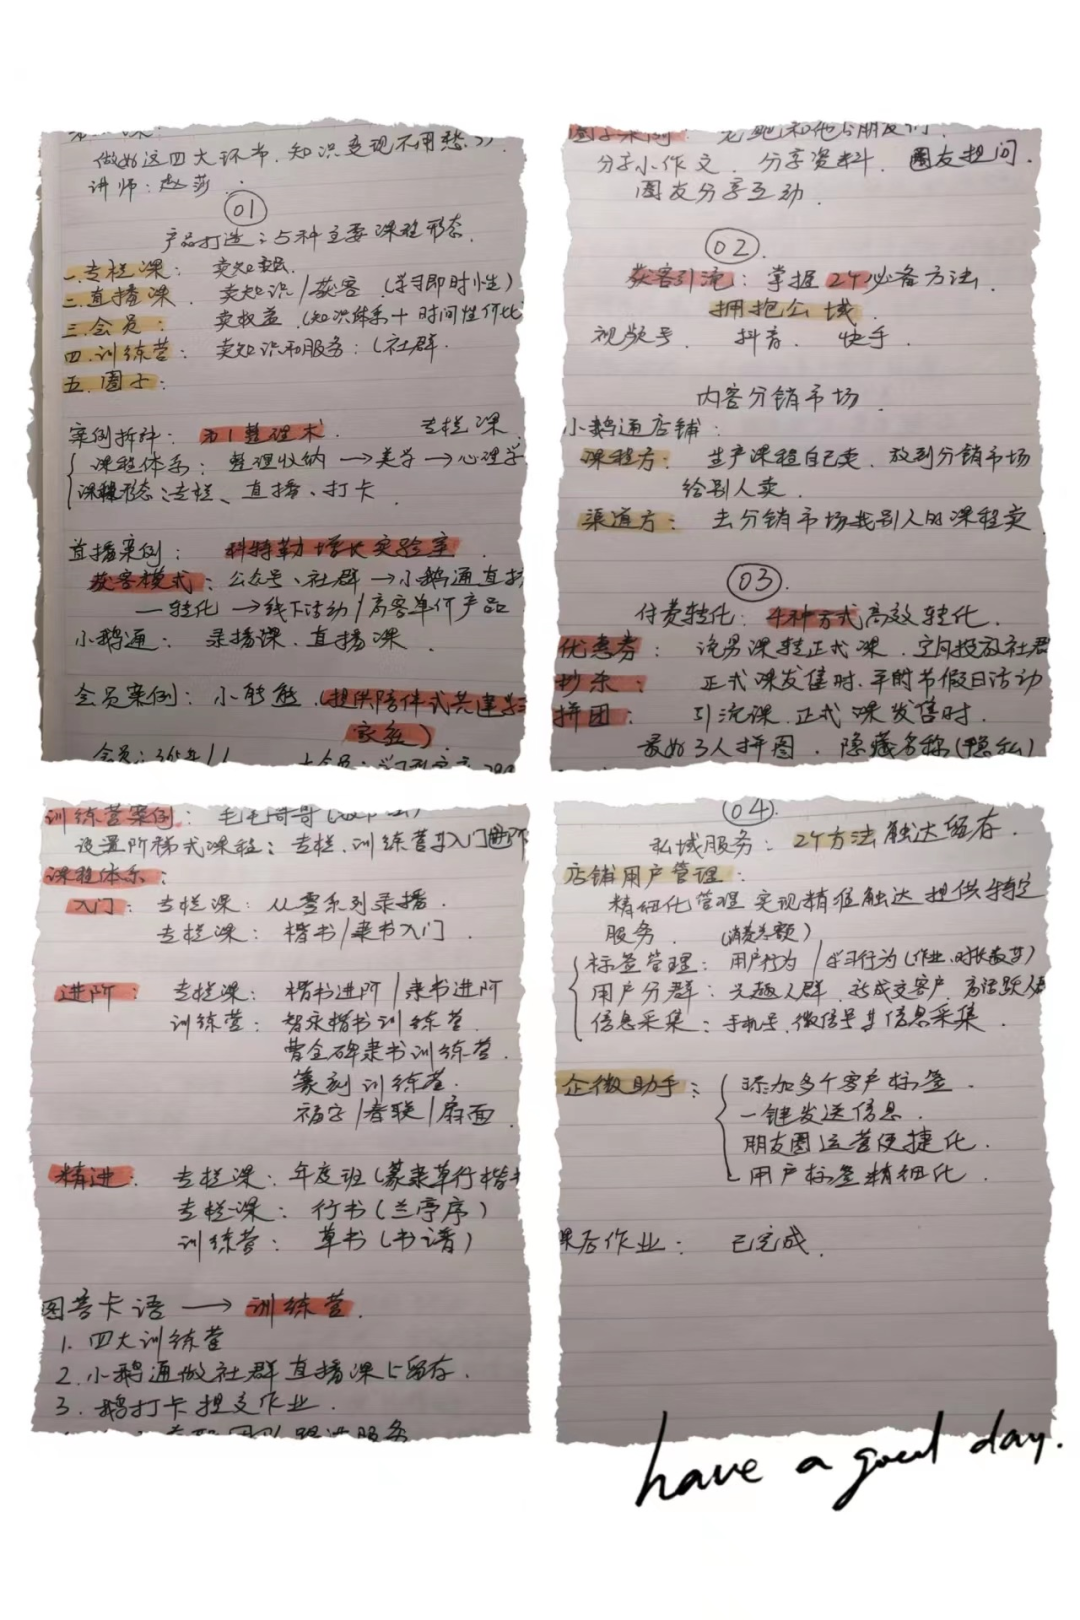 做好这四大环节,知识变现不用愁》
讲师:赵莎.
01
产品打造:5种主要课程形态.
一.专栏课: 卖知识.
二.直播课. 卖知识/获客 (学习即时性)
三.会员: 卖权益.(知识体系+时间性价比
四.训练营: 卖知识和服务:(社群.
五.圈子:
案例拆解: 整理术. 专栏课
课程体系: 整理收纳→美学→心理学
课程形态:专栏、直播、打卡.
直播案例: 科特勒增长实验室.
获客模式:公众号、社群→小鹅通直播
一转化→线下活动/高客单价产品
小鹅通: 录播课.直播课.
会员案例:小熊熊.(提供陪伴式共建学习
家庭)
训练营案例: 毛毛哥哥
设置阶梯式课程:专栏.训练营
课程体系:
入门: 专栏课:从零系列录播.
专栏课: 楷书/隶书入门.
进阶: 专栏课: 楷书进阶/隶书进阶
训练营: 智永楷书训练营.
曹全碑隶书训练营.
篆刻训练营.
福字/春联/扇面.
精进: 专栏课:年度班(篆隶草行楷书
专栏课: 行书(兰亭序)
训练营: 草书(书谱)
图音卡语→训练营.
1. 四大训练营
2.小鹅通做社群直播课与留存.
3.鹅打卡提交作业.
分享小作文. 分享资料. 圈友提问.
圈友分享互动.
02
获客引流:掌握2个必备方法.
拥抱公域.
视频号. 抖音. 快手.
内容分销市场.
小鹅通店铺:
课程方: 生产课程自己卖.放到分销市场
给别人卖.
渠道方: 去分销市场找别人的课程卖
03
付费转化:4种方式高效转化.
优惠券: 课转正式课. 定向投放社群
秒杀: 正式课发售时.平时节假日活动
拼团: 引流课.正式课发售时.
最好3人拼团.隐藏名称(隐私)
04
私域服务: 2个方法触达留存.
店铺用户管理:
精细化管理 实现精准触达 提供特定
服务. (消费总额)
标签管理: 用户行为/学习行为(作业.时长
用户分群: 兴趣人群.新成交客户.高活跃人群
信息采集: 手机号.微信号等信息采集.
企微助手: 添加多个客户标签.
一键发送信息.
朋友圈运营便捷化.
用户标签精细化.
课后作业: 已完成.
have a good day.